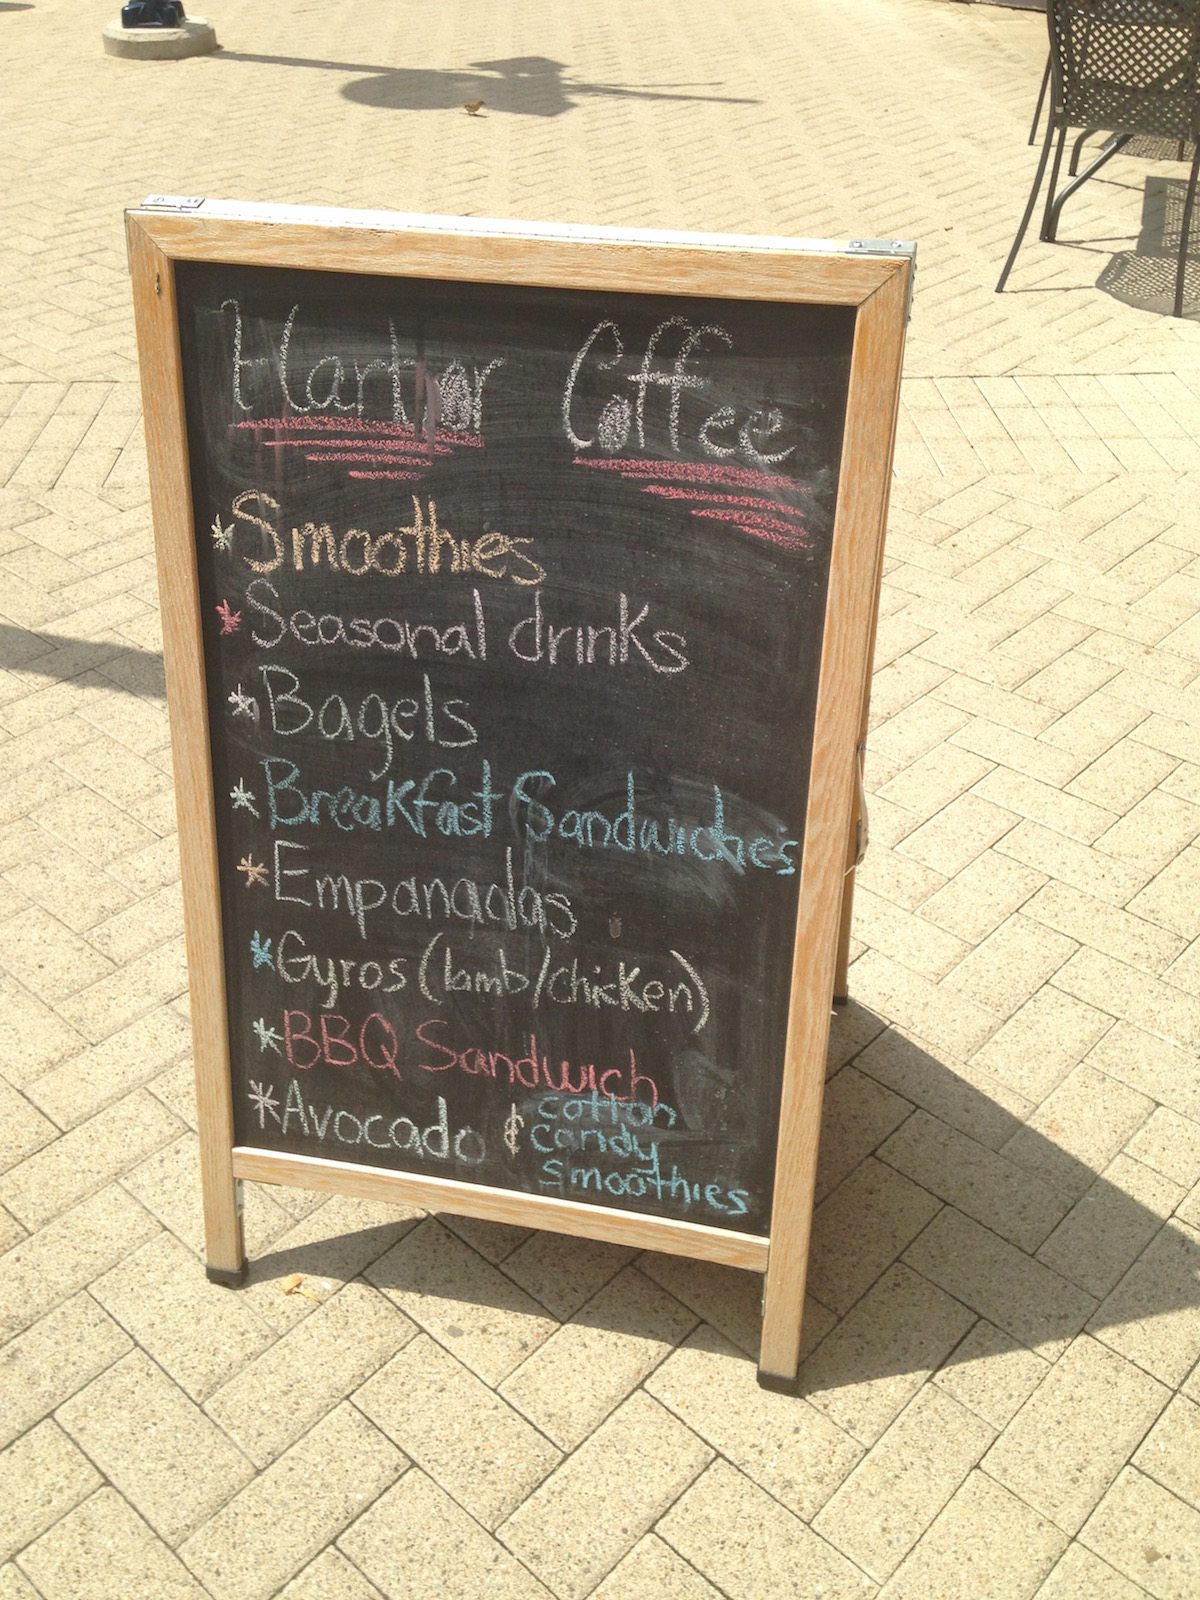 Harbor Coffee
* Smoothies
* Seasonal drinks
* Bagels
* Breakfast Sandwiches
* Empanadas
* Gyros (lamb/chicken)
* BBQ Sandwich
* Avocado & cotton
candy
smoothies